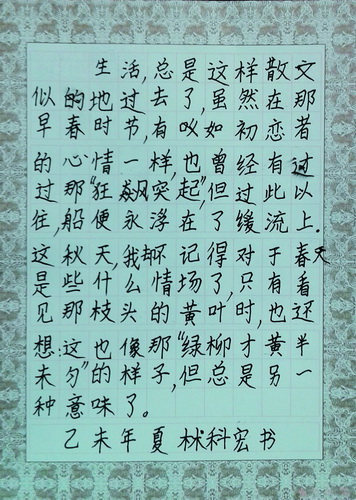 生活,总是这样散文
似的地过去了,虽然在那
早春时节,有以如初恋者
的心情一样,也曾经有过
过那"狂飙突起",但过此以
往,船便永浮在了缓流上.
这秋天,我却不记得对于春天
是些什么情场了,只有看
见那枝头的黄叶时,也还
想:这也像那"绿柳才黄半
未匀"的样子,但总是另一
种意味了。
乙未年夏林科宏书